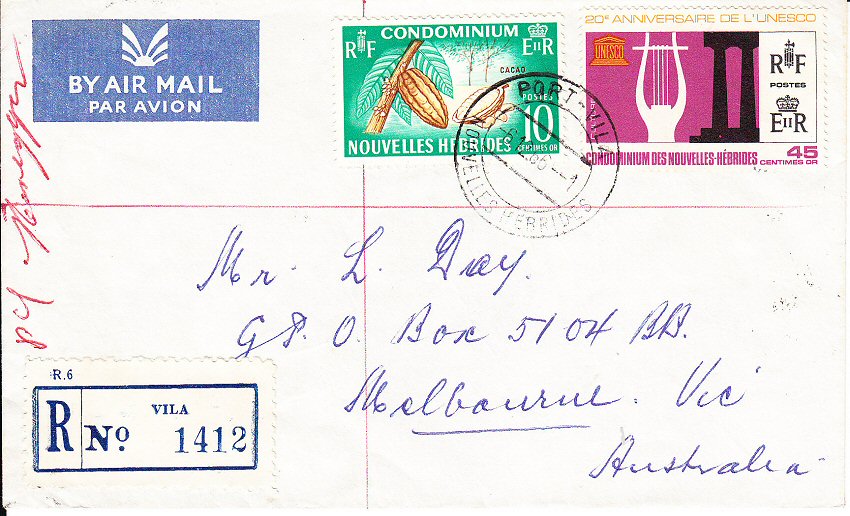 BY AIR MAIL
PAR AVION
CONDOMINIUM
RF
EIIR
CACAO
POSTES
10
CENTIMES OR
NOUVELLES HÉBRIDES
20e ANNIVERSAIRE DE L'UNESCO
UNESCO
RF
POSTES
EIIR
45
CONDOMINIUM DES NOUVELLES-HÉBRIDES CENTIMES OR
PORT-VILA
NOUVELLES HEBRIDES
Mr. L. Day.
G.P.O. Box 5104 BB.
Melbourne. Vic
Australia
R.6
VILA
R No 1412